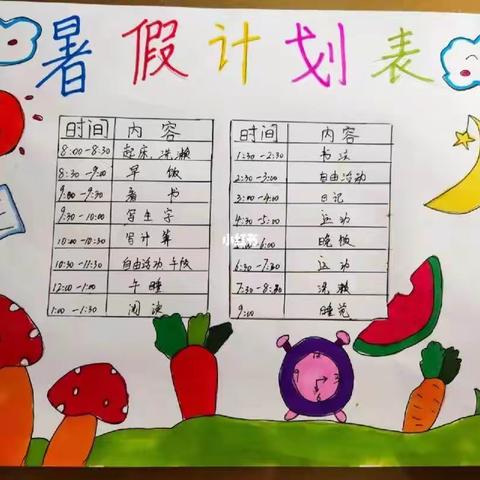 暑假计划表
时间 内容
8:00-8:30 起床,洗漱
8:30-9:00 早饭
9:00-9:30 看书
9:30-10:00 写生字
10:00-10:30 写计算
10:30-11:30 自由活动 午饭
12:00-1:00 午睡
1:00-1:30 阅读
时间 内容
1:30-2:30 书法
2:30-3:00 自由活动
3:00-4:00 日记
4:30-5:00 运动
-6:00 晚饭
6:30-7:30 运动
7:30-8:30 洗漱
9:00 睡觉
小红书